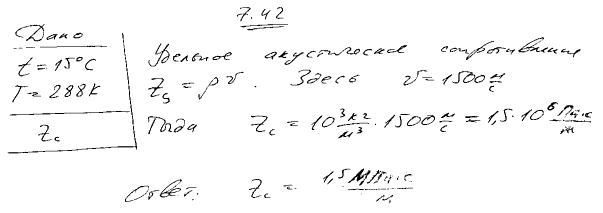 7.42
Дано
t = 15°C
T = 288K
Z_c
Удельное акустическое сопротивление
Z_s = ρv. Здесь v = 1500 м/с
Тогда Z_c = 10³ кг/м³ · 1500 м/с = 1,5·10⁶ Па·с/м
Ответ: Z_c = 1,5 МПа·с/м